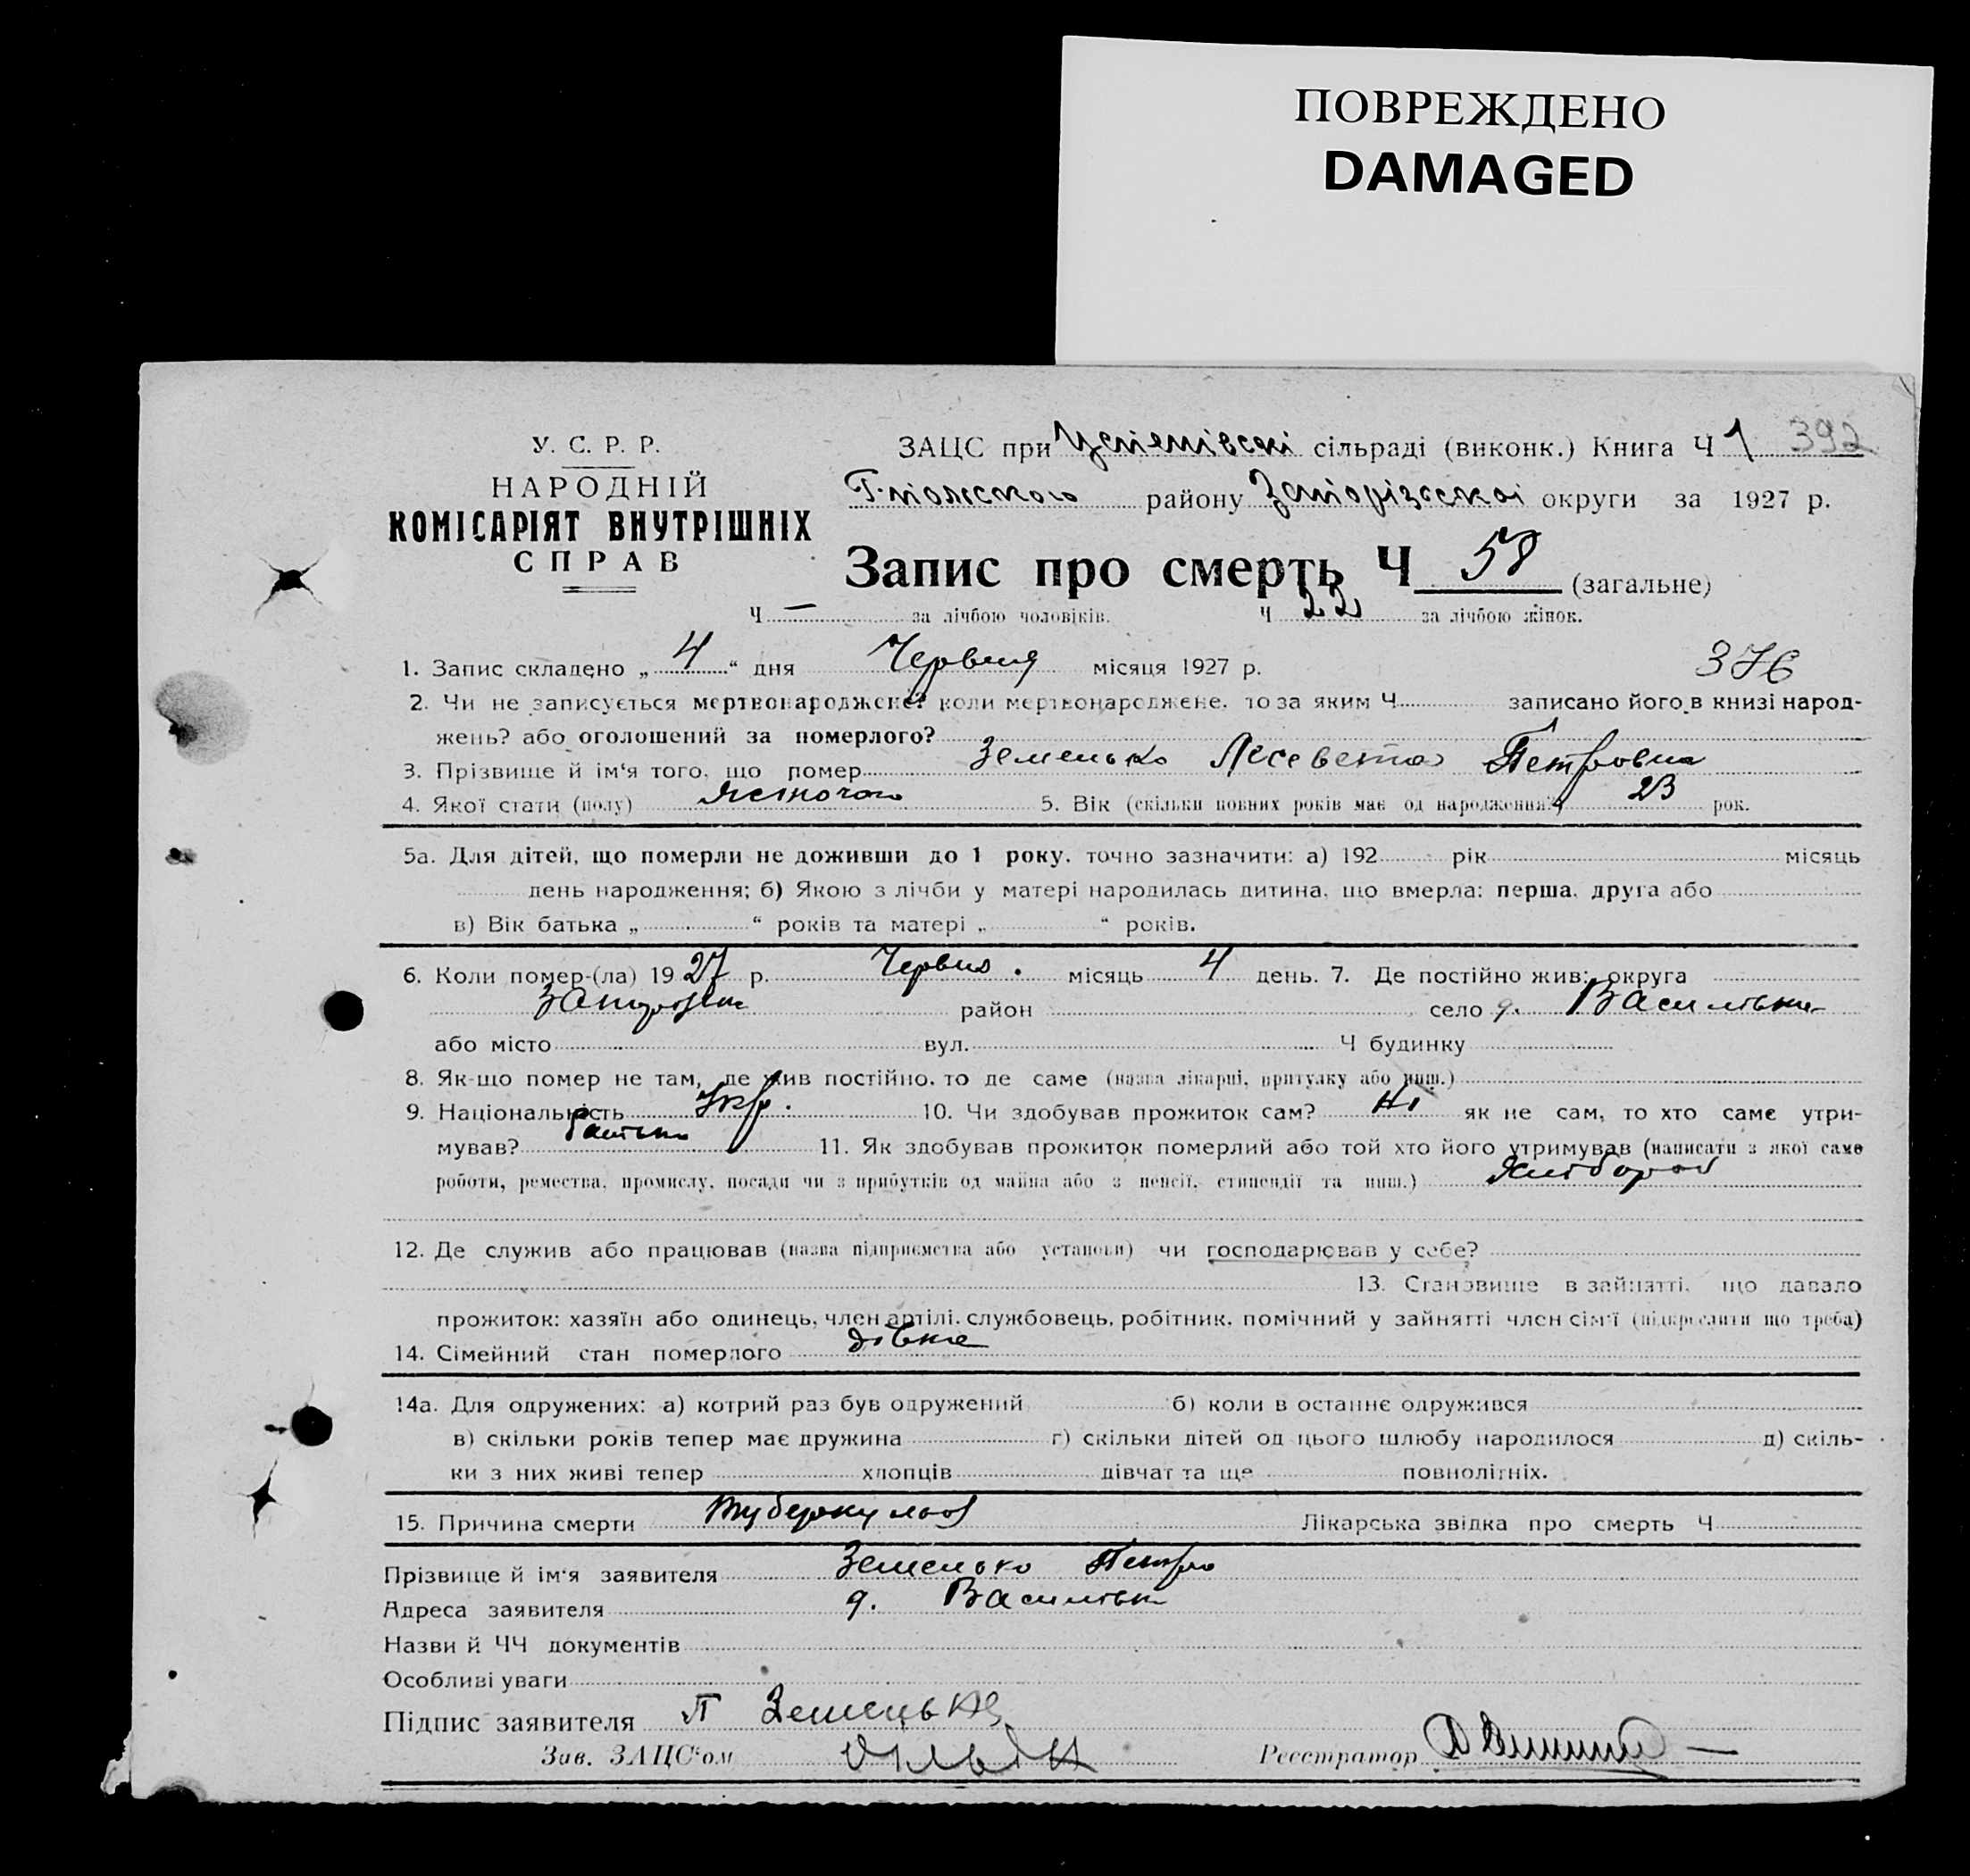 ПОВРЕЖДЕНО
DAMAGED
У. С. Р. Р.
НАРОДНІЙ
КОМІСАРІЯТ ВНУТРІШНІХ
СПРАВ
ЗАЦС при Успенівскі сільраді (виконк.) Книга Ч 1 392
району Запорізскоі округи за 1927 р.
Запис про смерть Ч 58 (загальне)
Ч — за лічбою чоловіків. Ч 22 за лічбою жінок.
1. Запис складено „ 4 “ дня Червня місяця 1927 р. 376
2. Чи не записується мертвонароджене? коли мертвонароджене, то за яким Ч записано його в книзі народ-
жень? або оголошений за померлого?
3. Прізвище й ім'я того, що помер Земенько Лесевета Петровна
4. Якої стати (полу) Жіночого 5. Вік (скільки повних років має од народження?) 23 рок.
5а. Для дітей, що померли не доживши до 1 року, точно зазначити: а) 192 рік місяць
день народження; б) Якою з лічби у матері народилась дитина, що вмерла: перша, друга або
в) Вік батька „ “ років та матері „ “ років.
6. Коли помер-(ла) 19 27 р. Червня місяць 4 день. 7. Де постійно жив: округа
район село
або місто вул. Ч будинку
8. Як-що помер не там, де жив постійно, то де саме (назва лікарні, притулку або инш.)
9. Національність Укр. 10. Чи здобував прожиток сам? Ні як не сам, то хто саме утри-
мував? батько 11. Як здобував прожиток померлий або той хто його утримував (написати з якої саме
роботи, ремества, промислу, посади чи з прибутків од майна або з пенсії, стипендії та инш.) Хлібороб
12. Де служив або працював (назва підприємства або установи) чи господарював у себе?
13. Становище в зайнятті, що давало
прожиток: хазяїн або одинець, член артілі, службовець, робітник, помічний у зайнятті член сім'ї (підкреслити що треба)
14. Сімейний стан померлого дівка
14а. Для одружених: а) котрий раз був одружений б) коли в останнє одружився
в) скільки років тепер має дружина г) скільки дітей од цього шлюбу народилося д) скіль-
ки з них живі тепер хлопців дівчат та ще повнолітніх.
15. Причина смерти туберкульоз Лікарська звідка про смерть Ч
Прізвище й ім'я заявителя Земенько Петро
Адреса заявителя
Назви й ЧЧ документів
Особливі уваги
Підпис заявителя П
Зав. ЗАЦС'ом Реєстратор